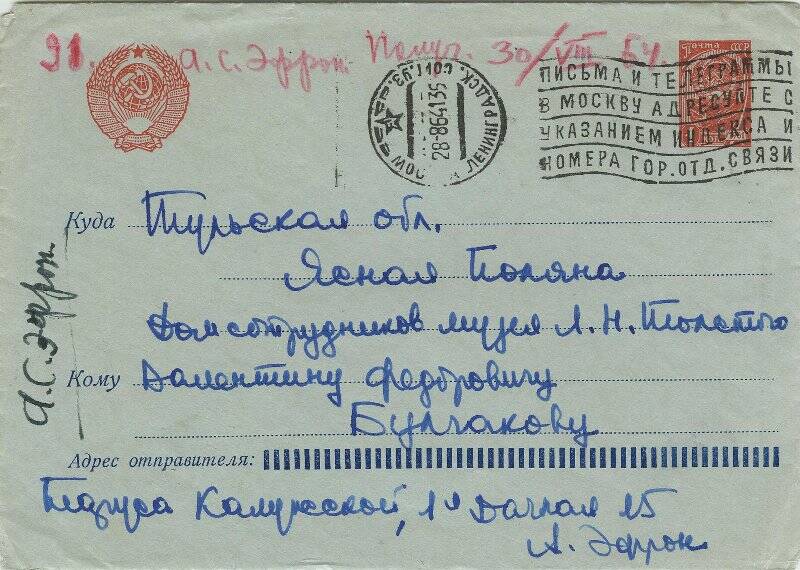 91. А.С. Эфрон Получ. 30/VIII 64.
Почта СССР
МОСКВА ЛЕНИНГРАДСК.
28-8641335
ПИСЬМА И ТЕЛЕГРАММЫ
В МОСКВУ АДРЕСУЙТЕ С
УКАЗАНИЕМ ИНДЕКСА И
НОМЕРА ГОР.ОТД.СВЯЗИ
Куда Тульская обл.
Ясная Поляна
Дом сотрудников музея Л.Н. Толстого
Кому Валентину Федоровичу
Булгакову
А.С. Эфрон
Адрес отправителя:
Таруса Калужской, 1я Дачная 15
А. Эфрон